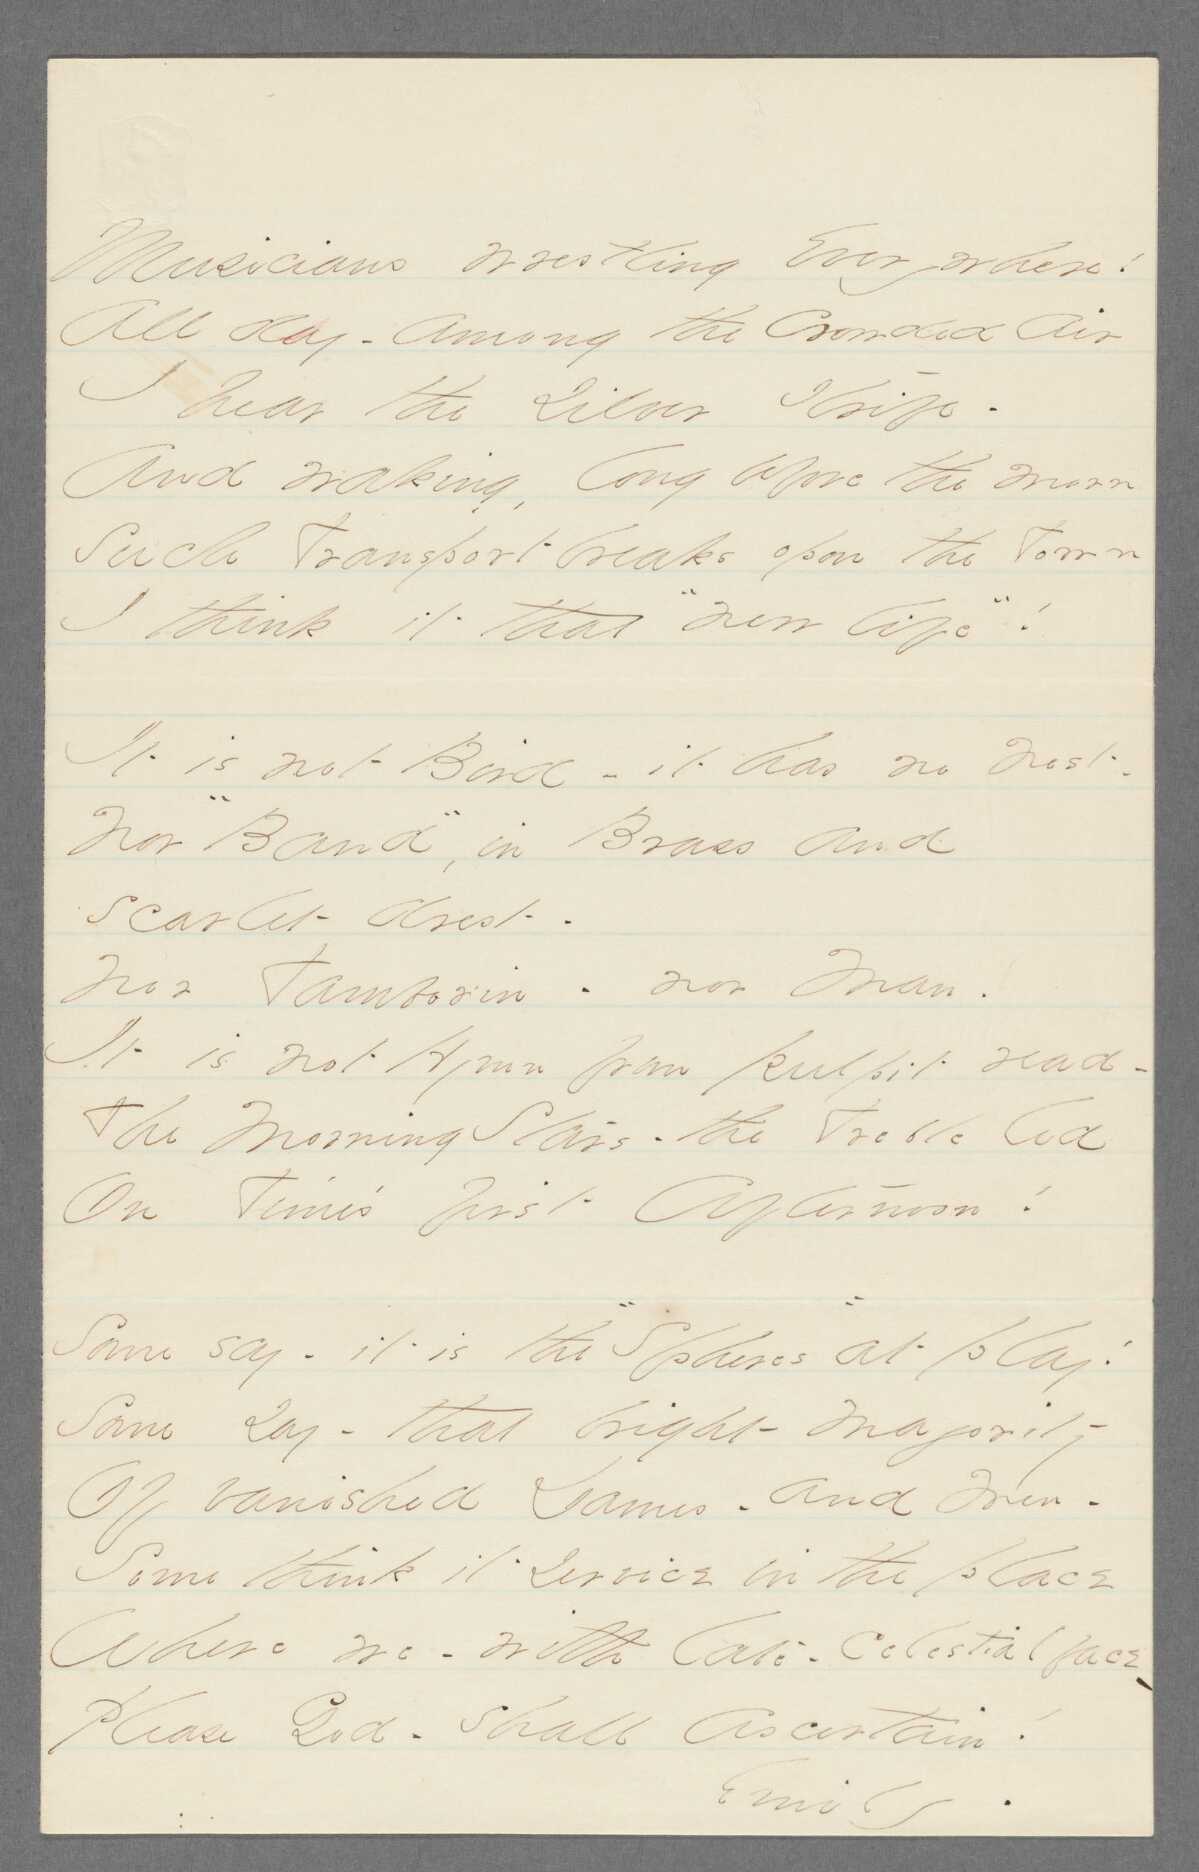 Musicians wrestling Everywhere!
All day - among the Crowded Air
I hear the Silver Strife -
And waking, long before the morn
Such Transport breaks upon the Town
I think it that "new life"!
It is not Bird - it has no nest -
Nor "Band", in Brass and
scarlet drest -
Nor Tamborin - nor Man.
It is not Hymn from pulpit read -
The Morning Stars - the Treble led
On Time's first Afternoon!
Some say - it is the "Spheres" at play!
Some say - that bright Majority
Of vanished Dames - and Men -
Some think it service in the place
Where we - with late - celestial face
Please God - shall ascertain!
Emily.